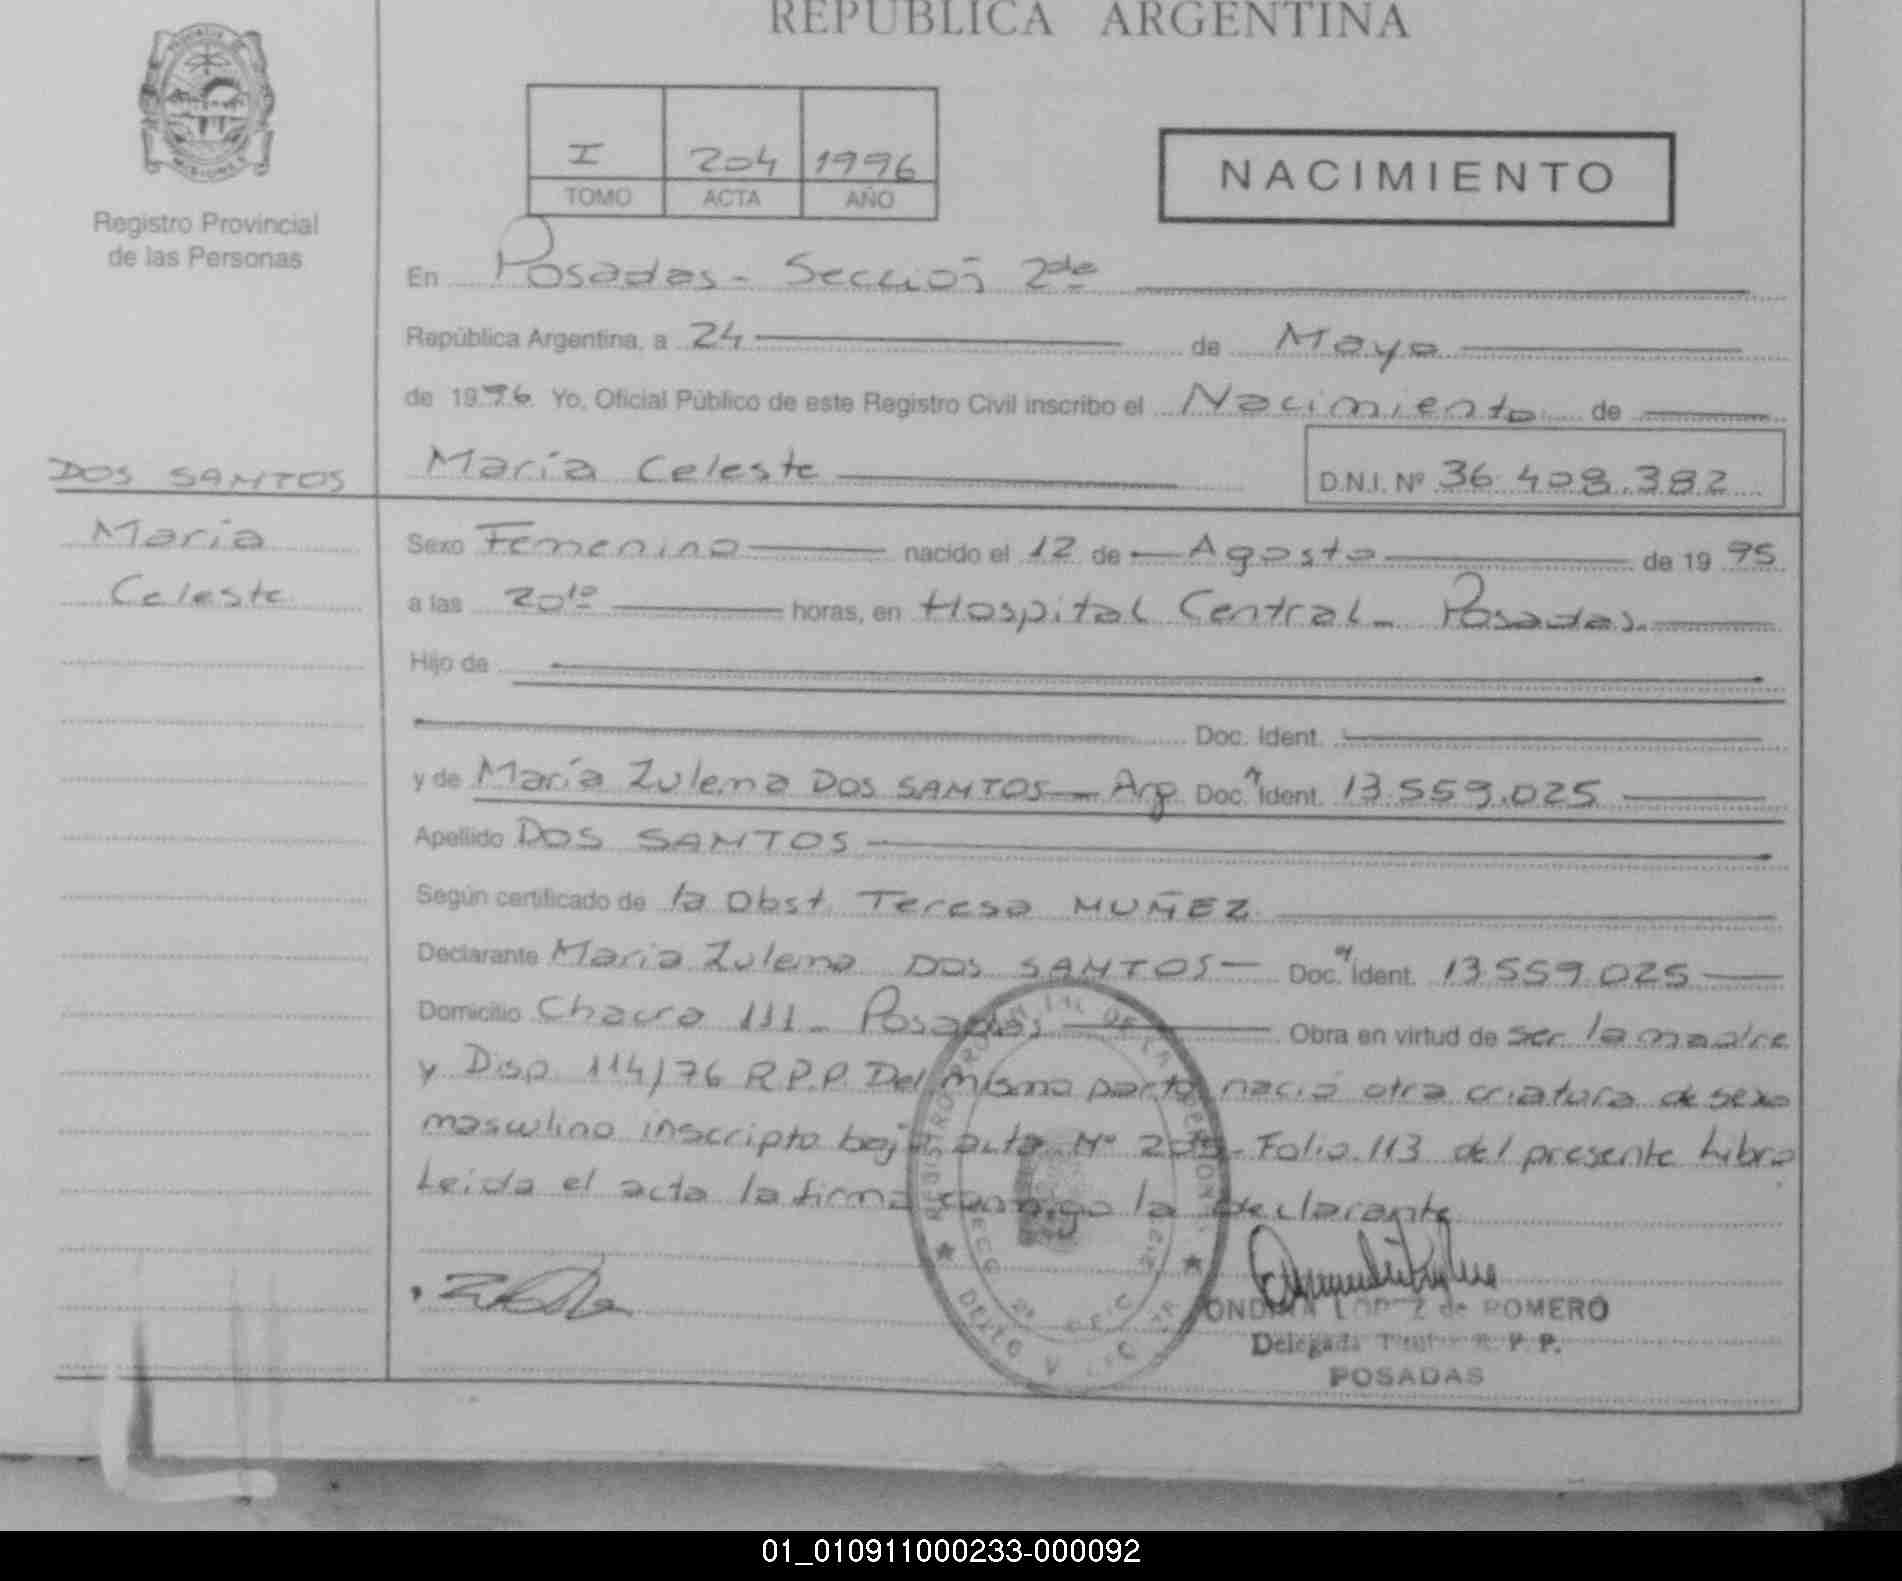 REPUBLICA ARGENTINA
I 204 1996
TOMO ACTA AÑO
NACIMIENTO
MISIONES
Registro Provincial
de las Personas
En Posadas - Sección 2da
República Argentina, a 24 de Mayo
de 1996 Yo, Oficial Público de este Registro Civil inscribo el Nacimiento de
DOS SANTOS María Celeste D.N.I. Nº 36.408.382
María
Celeste
Sexo Femenino nacido el 12 de Agosto de 1995
a las 20¹⁰ horas, en Hospital Central - Posadas.
Hijo de
Doc. Ident.
y de María Zulema DOS SANTOS - Arg. Doc. Ident. 13.559.025
Apellido DOS SANTOS
Según certificado de la Obst. Teresa MUÑEZ
Declarante María Zulema DOS SANTOS - Doc. Ident. 13.559.025
Domicilio Chacra 111 - Posadas Obra en virtud de ser la madre
y Disp. 114/76 R.P.P. Del mismo parto nació otra criatura de sexo
masculino inscripto bajo acta Nº 205 - Folio 113 del presente Libro
Leida el acta la firma conmigo la declarante
LOPEZ de ROMERO
Delegada Titular R. P. P.
POSADAS
01_010911000233-000092